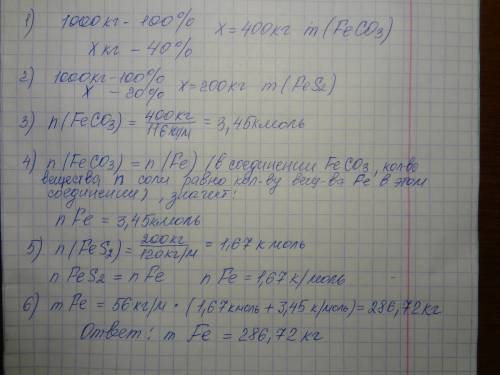 1) 1000кг - 100%   x = 400кг m (FeCO3)
xкг - 40%
2) 1000кг - 100%   x = 200кг m (FeS2)
x - 20%
3) n (FeCO3) = 400кг / 116кг/м = 3,45кмоль
4) n (FeCO3) = n (Fe) (в соединении FeCO3, кол-во
вещества n соли равно кол-ву вещ-ва Fe в этом
соединении), значит:
n Fe = 3,45кмоль
5) n (FeS2) = 200кг / 120кг/м = 1,67 кмоль
n FeS2 = n Fe   n Fe = 1,67 к/моль
6) m Fe = 56 кг/м · (1,67кмоль + 3,45 к/моль) = 286,72 кг
Ответ: m Fe = 286,72 кг